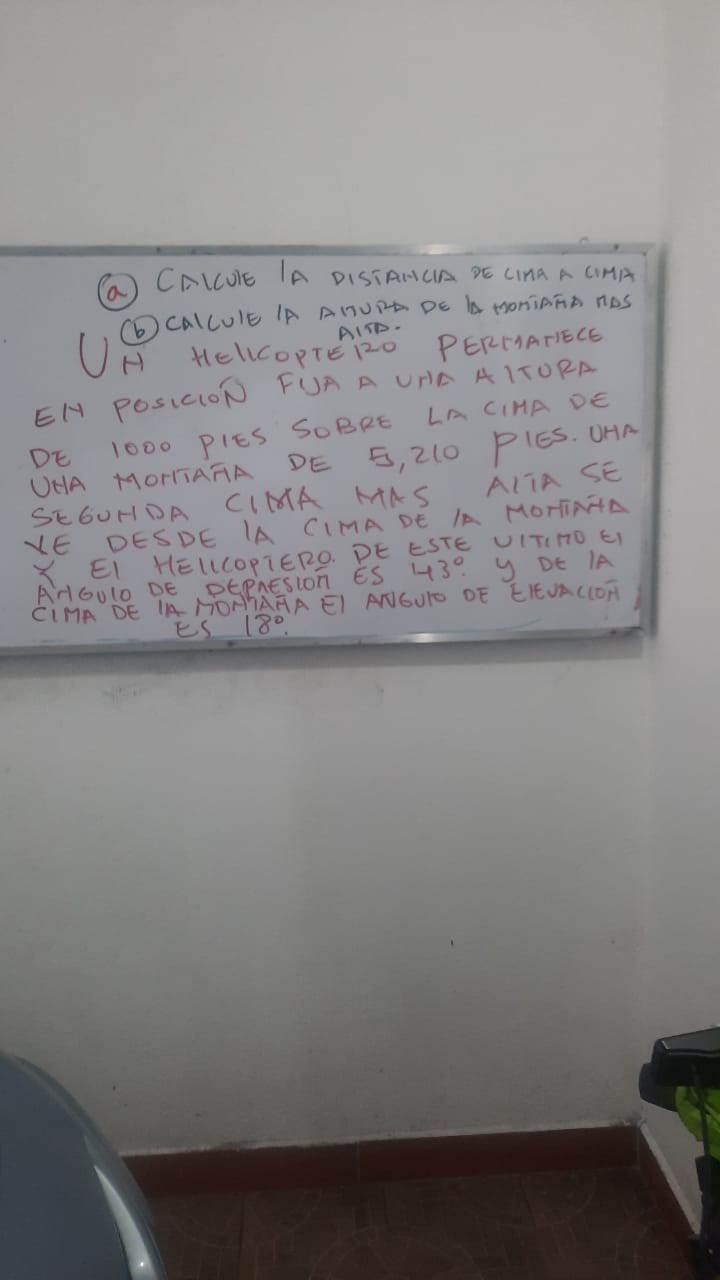 (a) CALCULE LA DISTANCIA DE CIMA A CIMA
(b) CALCULE LA ALTURA DE LA MONTAÑA MAS
ALTA.
UN HELICOPTERO PERMANECE
EN POSICIOÑ FIJA A UNA ALTURA
DE 1000 PIES SOBRE LA CIMA DE
UNA MONTAÑA DE 5,210 PIES. UNA
SEGUNDA CIMA MAS ALTA SE
VE DESDE LA CIMA DE LA MONTAÑA
Y El HELICOPTERO. DE ESTE ULTIMO El
ANGULO DE DEPRESIOÑ ES 43º. y DE LA
CIMA DE LA MONTAÑA El ANGULO DE ElEVACIOÑ
ES 18º.